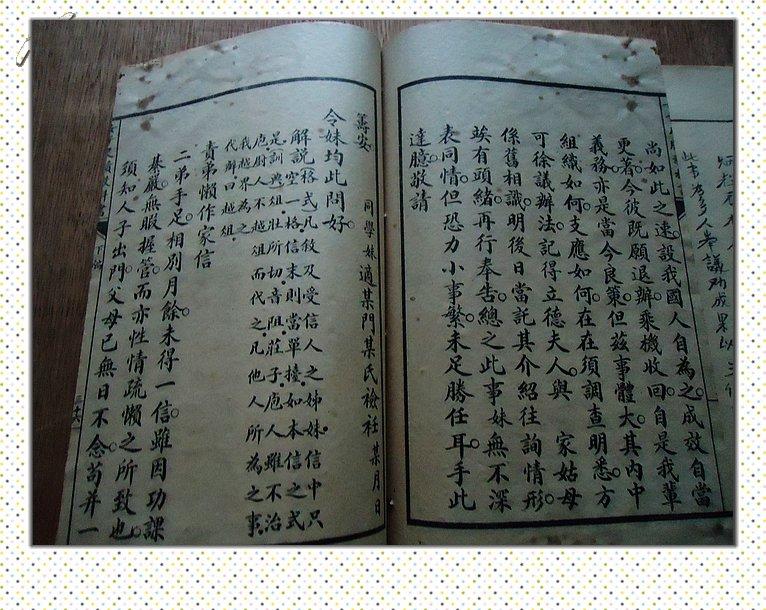 尚如此之速。設我國人自為之。成效自當
更著。今彼既願退辦。乘機收回。自是我輩
義務。亦是當今良策。但茲事體大。其內中
組織如何。支應如何。在在須調查明悉。方
可徐議辦法。記得立德夫人。與 家姑母
係舊相識。明後日當託其介紹往詢情形。
竢有頭緒。再行奉告。總之此事妹無不深
表同情。但恐力小事繁。未足勝任耳。手此
達臆。敬請
籌安
令妹均此問好。
同學妹適某門某氏檢衽 某月日
解說 稱式凡敘及受信人之姊妹。信中只
空一格。信末則當單擡。如本信之式
是。訓典 俎。壯所切。音阻。莊子。庖人雖不治
庖。尸人不越俎而代之。凡他人所為之事。
我越界為之。
代辭曰越俎。
責弟懶作家信
二弟手足。相別月餘。未得一信。雖因功課
綦嚴。無暇握管。而亦性情疏懶之所致也。
須知人子出門。父母已無日不念。苟并一
三十六